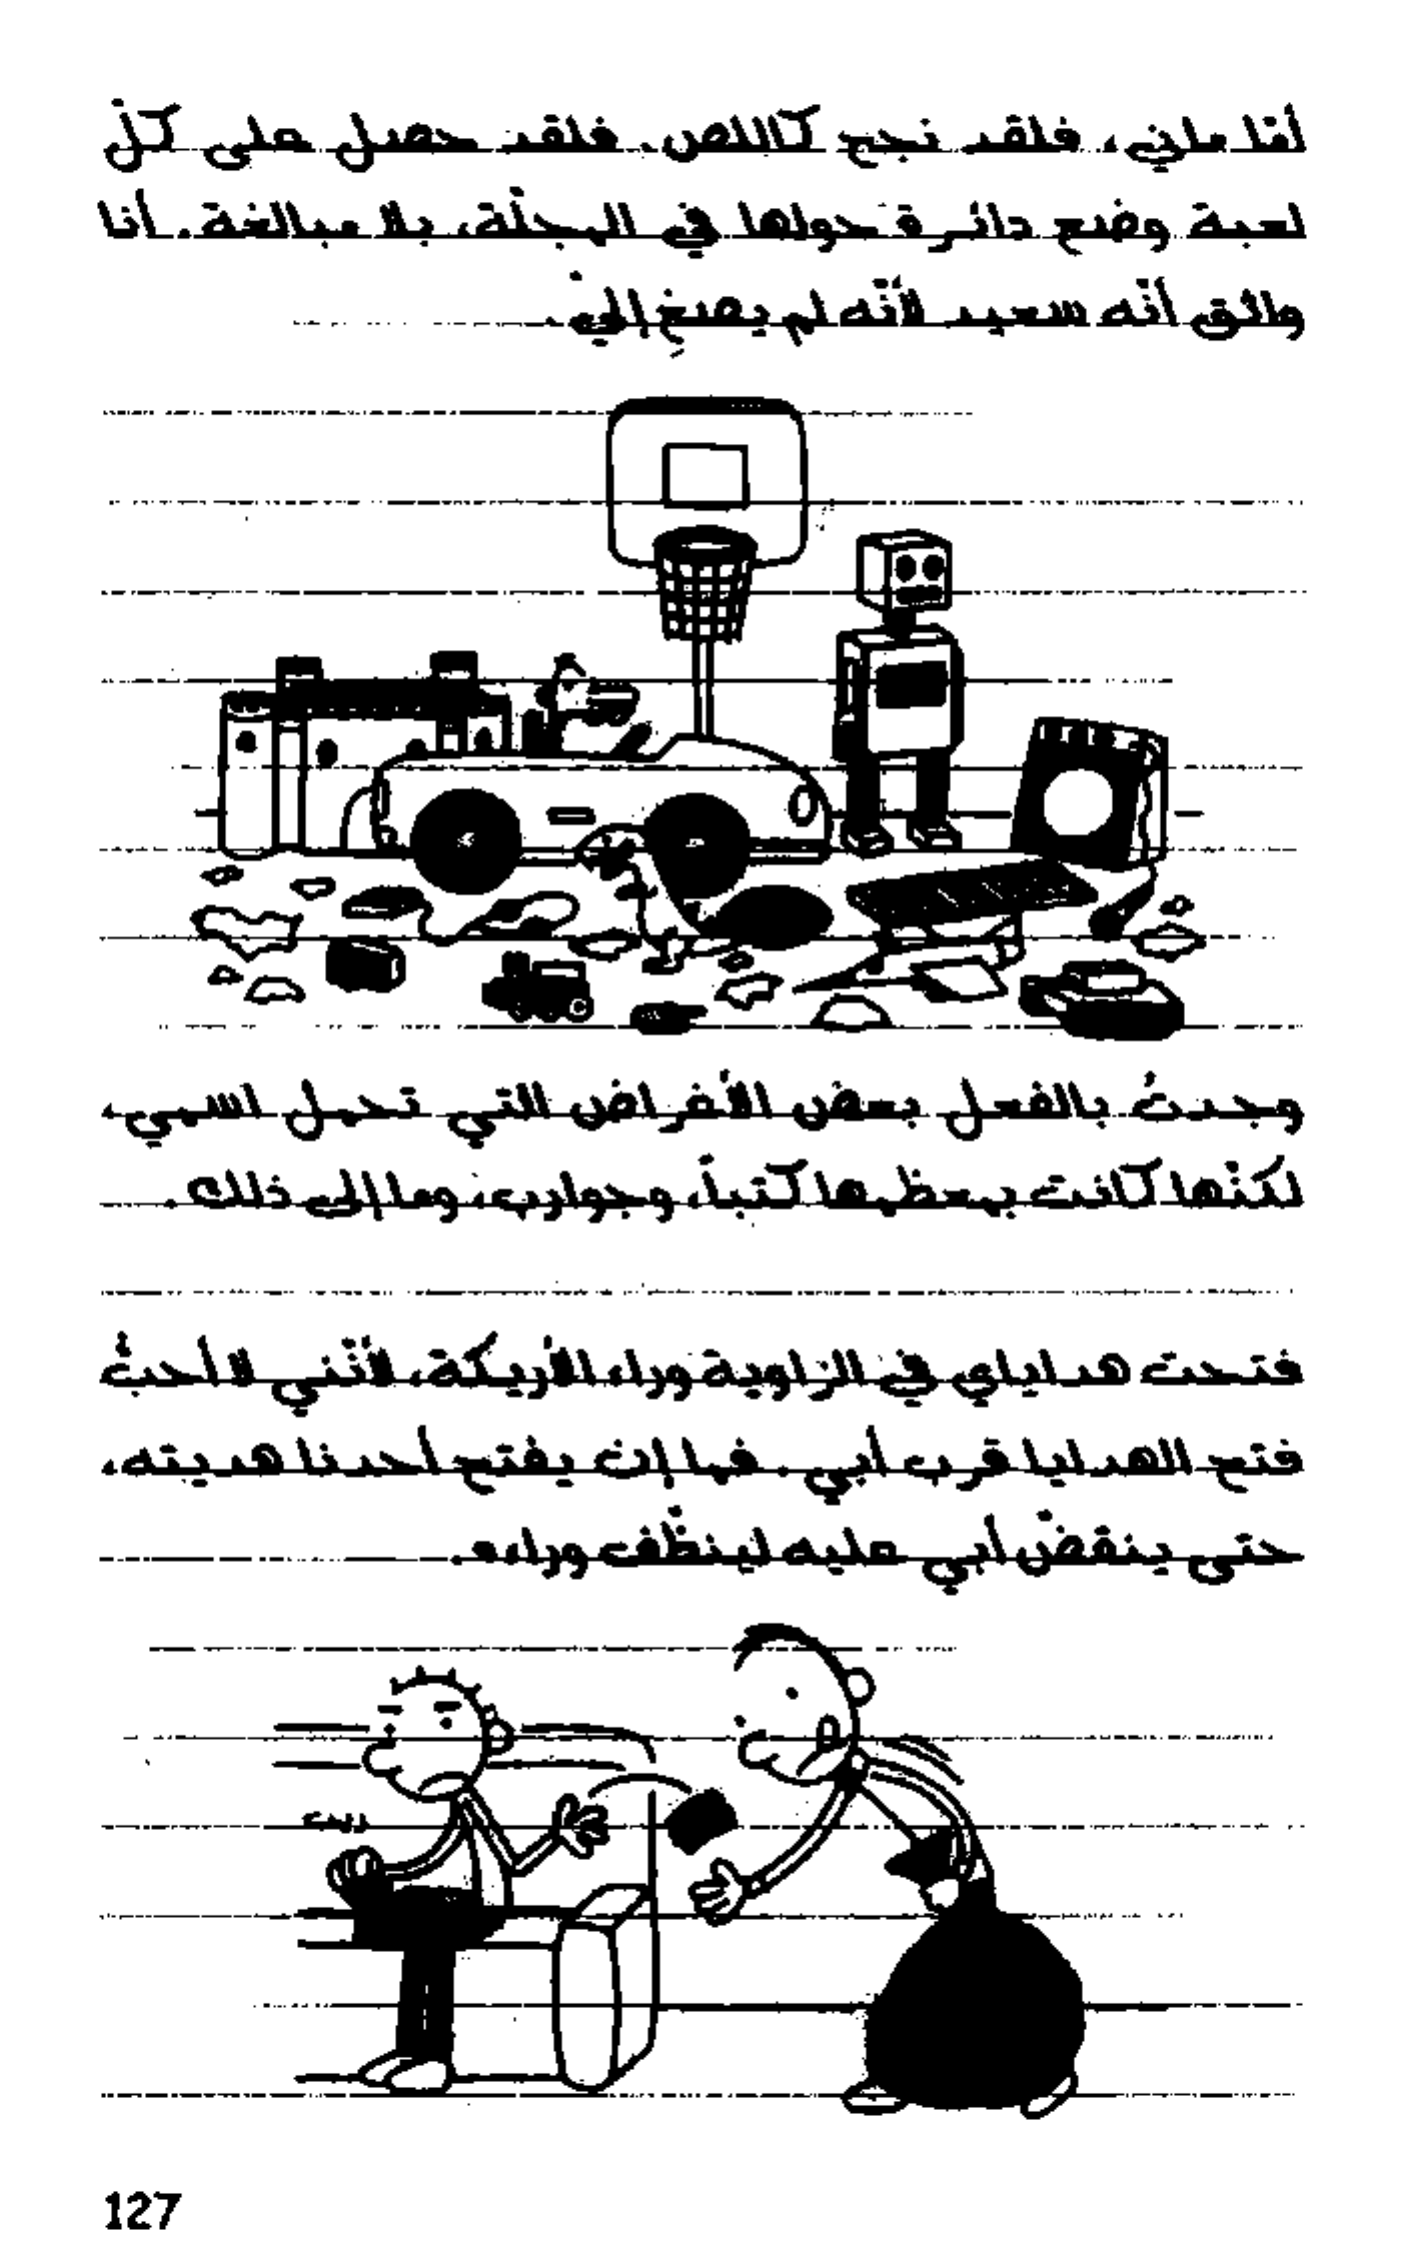 أمّا ماني، فلقد نجح كاللص. فلقد حصل على كلّ
لعبة وضع دائرة حولها في المجلّة، بلا مبالغة. أنا
واثق أنّه سعيد لأنّه لم يصغِ إليّ.
وجدتُ بالفعل بعض الأغراض التي تحمل اسمي،
لكنّها كانت بمعظمها كتباً، وجوارب، وما إلى ذلك.
فتحت هداياي في الزاوية وراء الأريكة، لأنّني لا أحبُّ
فتح الهدايا قرب أبي. فما إن يفتح أحدنا هديته،
حتى ينقضّ أبي عليه لينظّف وراءه.
127